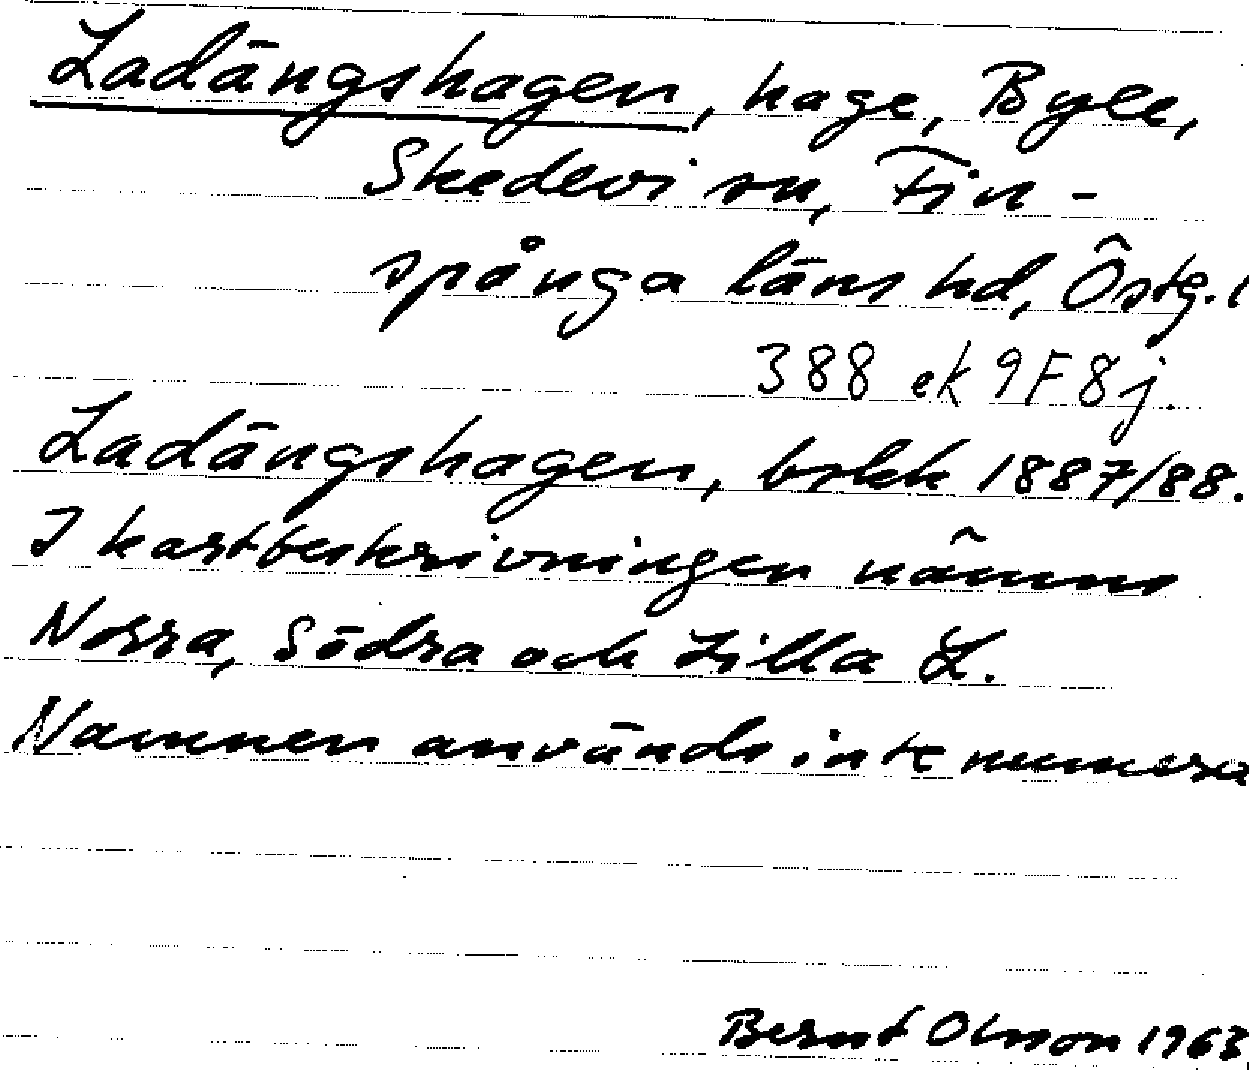 Ladängshagen, hage, Byle,
Skedevi sn, Fin-
spånga läns hd, Östg. l
388 ek 9F8j.
Ladängshagen, bskk 1887/88.
I kartbeskrivningen nämns
Norra, Södra och Lilla L.
Namnen används inte numera
Bernt Olsson 1963